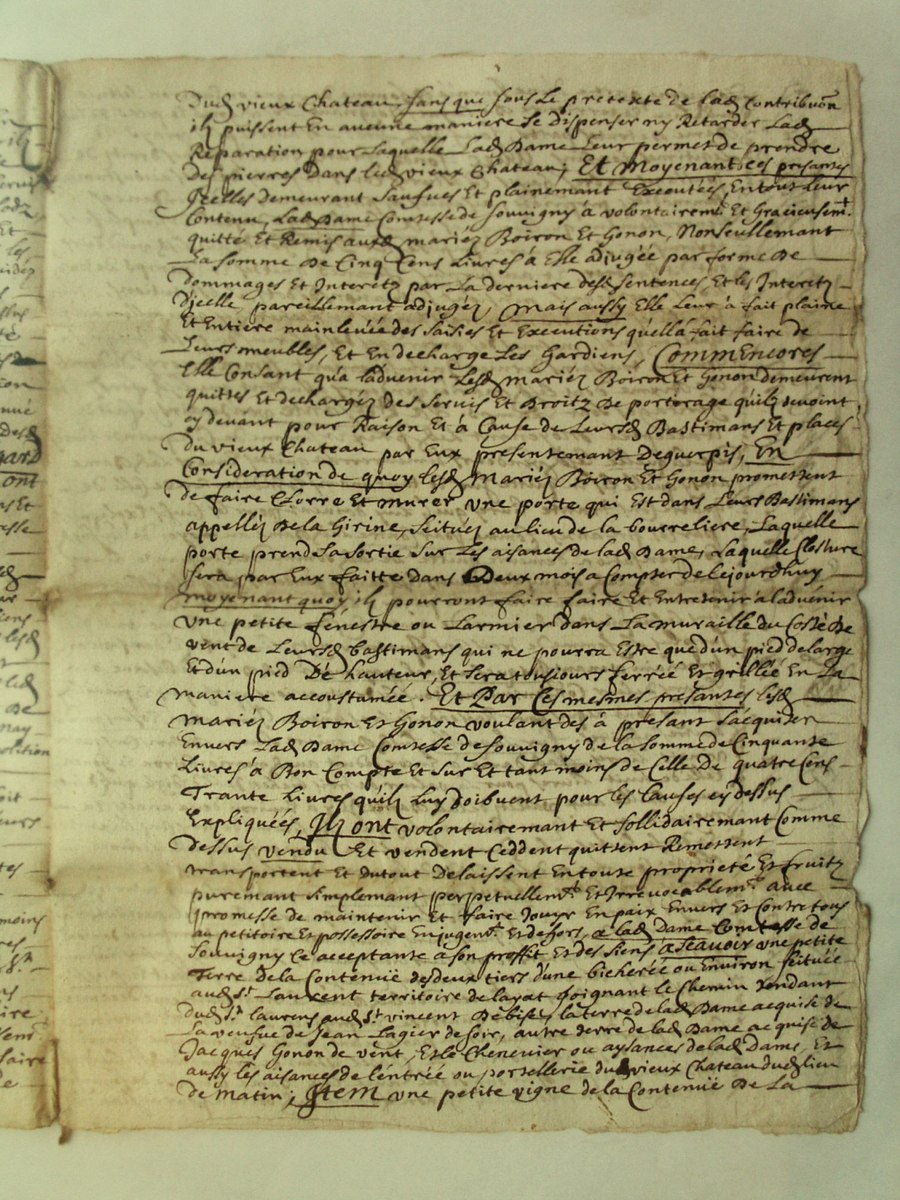 Dud vieux Chateau, sans que sous Le pretexte de lad Contribuon
ilz puissent En aucune maniere se Dispenser ny Retarder Lad
Reparation pour Laquelle Lad Dame Leur permet de prendre
Des pierres Dans led vieux Chateau, Et Moyenant ces presantes
Icelles demeurant Saufues Et plainemant Executées, En tout Leur
Contenu, Lad Dame Comtesse de Souvigny a volontairemt Et Gracieusemt
quitté Et Remis ausd mariez Boiron Et Gonon, Nonseullemant
La somme De Cinq Cens Livres a Elle adjugée par forme De
Dommages Et Interetz par La derniere desd sentences, Et les Interetz
Dicelle pareillemant adjugez, Mais aussy Elle Leur a fait plaine
Et Entiere mainlevée des Saisies Et Executions quella fait faire de
Leurs meubles, Et En decharge Les Gardiens, Comm Encores
Elle Consant qu'a l'advenir Lesd mariez Boiron Et Gonon demeurent
quittes Et dechargez des Servis Et Droitz De porterage quilz devoint
cy devant pour Raison Et a Cause de Leursd Bastimans Et places
Du vieux Chateau par Eux presentemant Deguerpis, En
Consideration de quoy lesd Mariez Boiron Et Gonon promettent
De faire Clorre Et Murer une porte qui Est dans Leurs Bastimans
appellez De la Girine, Seituez au lieu de la bourreliere, Laquelle
porte prend Sa Sortie Sur Les aisances de lad Dame, Laquelle Closture
sera par Eux faitte Dans Deux mois a Compter de Cejourdhuy
moyenant quoy ilz pourront faire faire Et Entretenir a l'advenir
une petite fenestre ou Larmier dans La muraille du Costé De
vent de Leursd bastimans qui ne pourra Estre que d'un pied de large
Et d'un pied De hauteur, Et sera tousiours ferréé Et grillée En La
maniere accoustumée. Et Par Ces mesmes presantes, lesd
Mariez Boiron Et Gonon voulant des a presant sacquiter
Envers Lad Dame Comtesse de Souvigny de la Somme de Cinquante
Livres a Bon Compte Et Sur Et tant moins de Celle De quatre Cens
Trante Livres quilz Luy doibuent pour les Causes cy dessus
Expliquées, Ilz ont volontairemant Et Sollidairemant Comme
Dessus vendu Et vendent Ceddent quittent Remettent
transportent Et du tout Delaissent En toute proprieté Et fruitz
puremant Simplemant perpetuellemt Et Irrevocablemt avec
promesse de maintenir Et faire Jouyr En paix Envers Et Contre tous
au petitoire Et possessoire En jugemt Et dehors, a lad Dame Comtesse de
Souvigny Ce acceptante a son proffit Et des Siens a Scauoir une petite
Terre De la Contenüe des deux tiers d'une bicherée ou Environ Seituée
aud St Laurent territoire de layat Joignant le Chemin tendant
Dud St laurens aud St vincent De bise, la terre de lad Dame acquise de
La veufue de Jean Lagier de Soir, autre terre de lad Dame acquise de
Jacques Gonon de vent, Et le Chenevier ou aysances de lad Dame, Et
aussy les aisances de l'entréé ou portellerie du vieux Chateau dud lieu
De matin; Item une petite vigne de la Contenüe De La